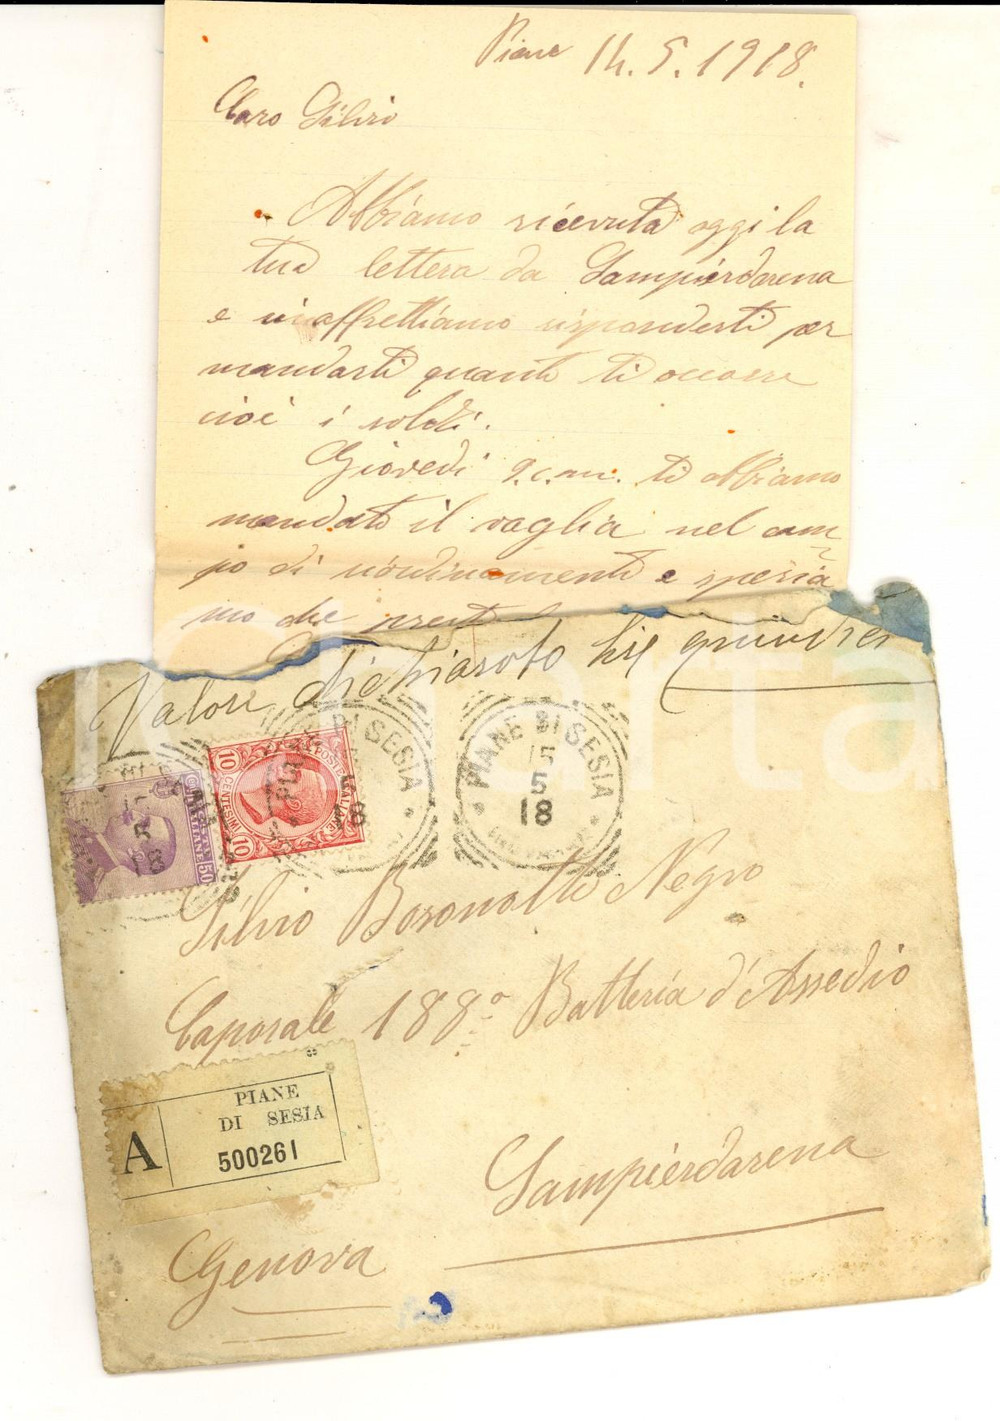 Piane 14.5.1918.
Caro Silvio
Abbiamo ricevuta oggi la
tua lettera da Sampierdarena
e ci affrettiamo risponderti per
mandarti quanto ti occorre
cioè i soldi.
Giovedì 9.c.m. ti abbiamo
mandato il vaglia nel cam-
po di riordinamento e speria
mo che presto
Valore dichiarato lire quindici
PIANE DI SESIA
15
5
18
POSTE ITALIANE
CENTESIMI 10
50
Silvio Negro
Caporale 188° Batteria d'Assedio
A
PIANE
DI SESIA
500261
Sampierdarena
Genova